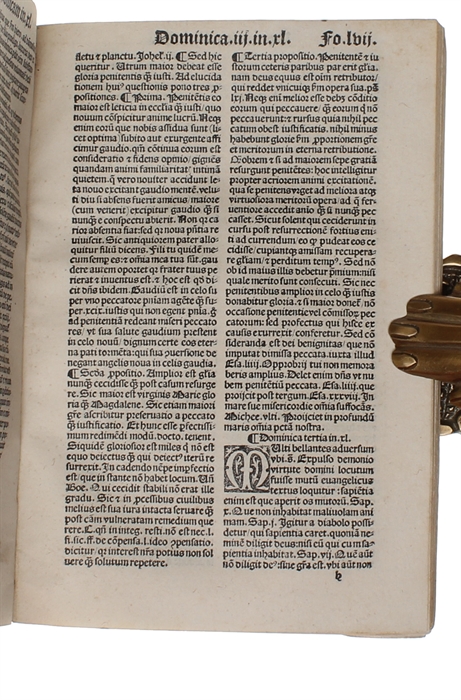 Dominica.iij.in.xl. Fo.lvij.
fletu ⁊ planctu. Johel.ij. ¶ Sed hic
queritur. Utrum maior debeat esse
gloria penitentis q̃ iusti. Ad elucida
tionem huiꝰ questionis pono tres ꝓ
positiones. ¶ Prima. Penitẽtis eo
maior est leticia in ecclia q̃ iusti/ quo
nouum cõspicitur anime lucrũ. Neqꝫ
enim eorũ que nobis assidua sunt (li
cet optima) subito aut exurgente affi
cimur gaudio. qm̃ cõtinua eorum est
consideratio ⁊ fidens opinio/ gignẽs
quandam animi familiaritatẽ/ intimã
quietem. que vero nouiter accidunt le
ta nouo excitant gaudio mentẽ. velu
ti diu si absens fuerit amicus/ maiore
scum venerit/ excipitur gaudio q̃ si
nunq̃ e conspectu abierit.
filij dicens. Fili tu quidẽ me
cum semp es: ⁊ oĩa mea tua sũt. gau
dere autem oportet qr frater tuus pe
rierat ⁊ inuentus est. ⁊ hoc est qd̃ di
cit dñs ibidem. Gaudiũ est in celo su
per vno peccatore pniam agẽte q̃ su/
per.xcix.iustis qui non egent pnĩa.
ad penitentiã redeant miseri peccato
res/ vt sua salute gaudium presteńt
in celo nouũ/ dignum certe eos eter
na pati tormẽta: qui sua ꝓuersione de
negant angelis noua in celis gaudia.
¶ Scđa ꝓpositio. Amplior est glia
nunq̃ cecidisse q̃ post casum resurge
re. Sic maior est virginis Marie glo
ria q̃ Magdalene. Sic etiam maiori
gr̃e ascribitur preseruatio a peccato
q̃ iustificatio. Et hunc esse pfectissi/
mum redimẽdi modũ. docto. tenent.
Siquidẽ gloriosior est miles q̃ nõ est
equo deiectus q̃ qui deiectꝰ iterũ re
surrexit. In cadendo nẽpe impfectio
est/ que in stante nõ habet locum. Uñ
Boe. Qui cecidit stabili nõ erat ille
gradu. Sic ⁊ in ꝓcessibus ciuilibus
melius est sua iura intacta seruare q̃
post cãm vulneratam remedium que
rere. C. qñ in integ. resti. nõ est nec. l.
fi. sic. ff. de cõpensa. l. ideo ꝓpensatio.
dicitur qr interest nr̃a potius non sol
uere q̃ solutum repetere.
¶ Tertia propositio. Penitentẽ ⁊ iu
storum ceteris paribus par erit glia.
nam deus equus est oim retributor/
qui reddet vnicuiqꝫ
Neqꝫ eni melior esse debʒ cõditio
eorum qui peccauere/ q̃ eorum q̃ nõ
peccauerũt: ⁊ rursus quia nihil pec
catum obest iustificatis. nihil minus
habebunt glorie fm̃ ꝓportionem gr̃e
et meritorum in eterna retributione.
resurgunt penitẽtes: hoc intelligitur
propter acriorem animi excitationẽ.
qua se penitens vrget ad meliora atqꝫ
virtuosiora meritoria opera/ ad q̃ fer
ventiore accedit aĩo q̃ si nunq̃ pec
casset. Sicut solent qui ceciderunt in
cursu post resurrectionẽ fortius eniti
ad currendum/ eo qꝫ pudeat eos ce
cidisse/ cupiantqꝫ amissam recupera
re gliam/ ⁊ perditum tempꝰ. Sed nõ
ob id maius illis debetur p̃mium: nisi
quale meritis sunt consecuti. Sic nec
penitentibus amplior in celo q̃ iustis
donabitur gloria. ⁊ si maior donet nõ
occasione penitentie vel cõmissoꝝ pec
catorum: sed profectus qui hisce ex
causis exurexit/ conferetur. Sed cõ
sideranda est dei benignitas/ que nõ
imputat dimissa peccata. iuxta illud
Esa.liiij. Opprobrij tui non memora
beris amplius. Delet enim dñs vt nu
bem penitẽtiũ peccata. Esa.liiij. que
proijcit post tergum. Esa.xxxviij. In
mare sue misericordie oĩa suffocãs.
Michee.vij. Proijciet in profundũ
maris omnia pctã nostra.
¶ Dominica tertia in.xl.
MUlti bellantes aduersum
vbi.s̃. Expulso demonio
virtute domini locutum
fuisse mutũ euangelicus
textus loquitur: sapiẽtia
enim est que aperit os mutorũ. Sap.
x. Que non inhabitat maliuolam ani
mam. Sap.j. Igitur a diabolo possi
detur/ qui sapientia caret. quoniã ne
minẽ diligit deus: nisi eũ qui cum sa/
pientia inhabitat. Sap.vij. Quẽ aut
nõ diligit de°: sine gr̃a est. vbi aut non
h